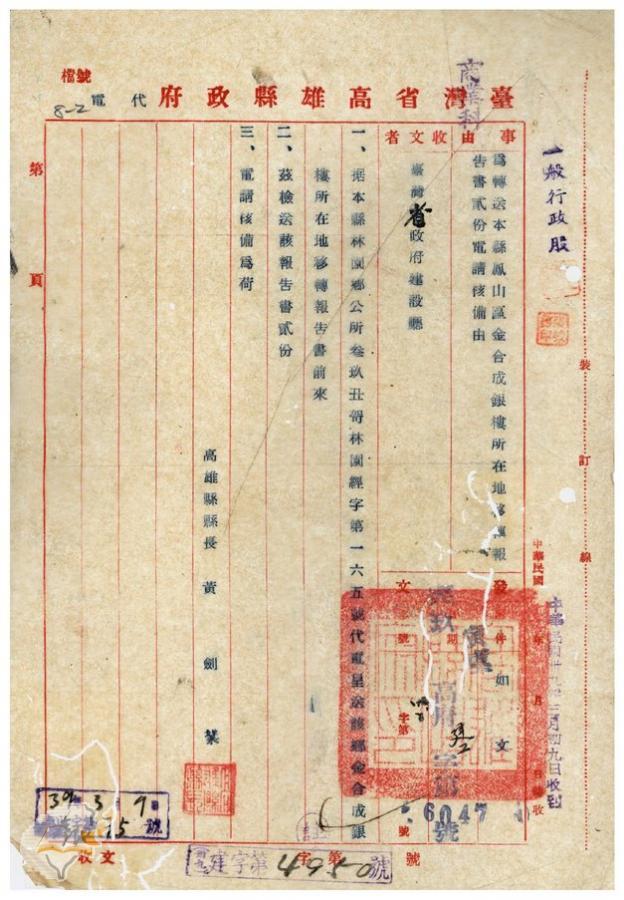 檔號
8-2
臺灣省高雄縣政府代電
商業科
一般行政股
事由
收文者
為轉送本縣鳳山區金合成銀樓所在地移轉報
告書貳份電請核備由
臺灣省政府建設廳
發
文
附件
如文
字第
高府
6047
號
一、據本縣林園鄉公所叁玖丑哿林園經字第一六五號代電呈送該鄉金合成銀
樓所在地移轉報告書前來
二、茲檢送該報告書貳份
三、電請核備為荷
高雄縣縣長黃劍棻
第頁
裝訂線
中華民國
年
月
中華民國卅九年三月初九日收到
39年3月9日
15號
收文
字第
號
建字第4950號